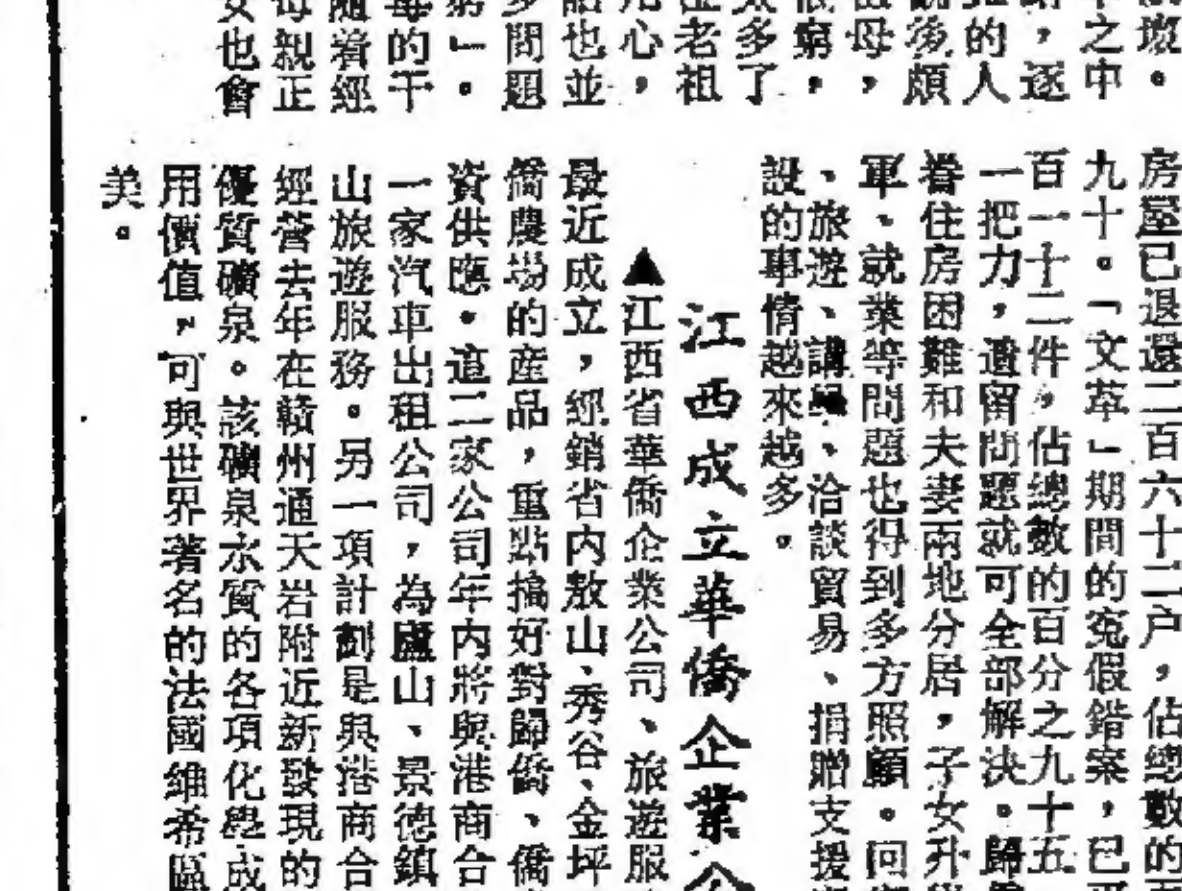 班。
之中
，逐
的人
後頗
母，
窮，
多了
老祖
心，
也並
問題
」。
的干
着經
親正
也會
房屋已退還二百六十二户，佔總數的
九十。「文萃」期間的冤假錯案，已
百一十二件，佔總數的百分之九十五
一把力，遺留問題就可全部解决。歸
眷住房困難和夫妻兩地分居，子女升
軍、就業等問題也得到多方照顧。回
、旅遊、講、洽談貿易、捐贈支援
設的事情越來越多。
江西成立華僑企業公
▲江西省華僑企業公司、旅遊服
最近成立，經銷省内敖山、秀谷、金坪
僑農場的産品，重點搞好對歸僑、僑
資供應。這二家公司年内將與港商合
一家汽車出租公司，為廬山、景德鎮
山旅遊服務。另一項計劃是與港商合
經營去年在贛州通天岩附近新發現的
優質礦泉。該礦泉水質的各項化學成
用價值，可與世界著名的法國維希區
美。